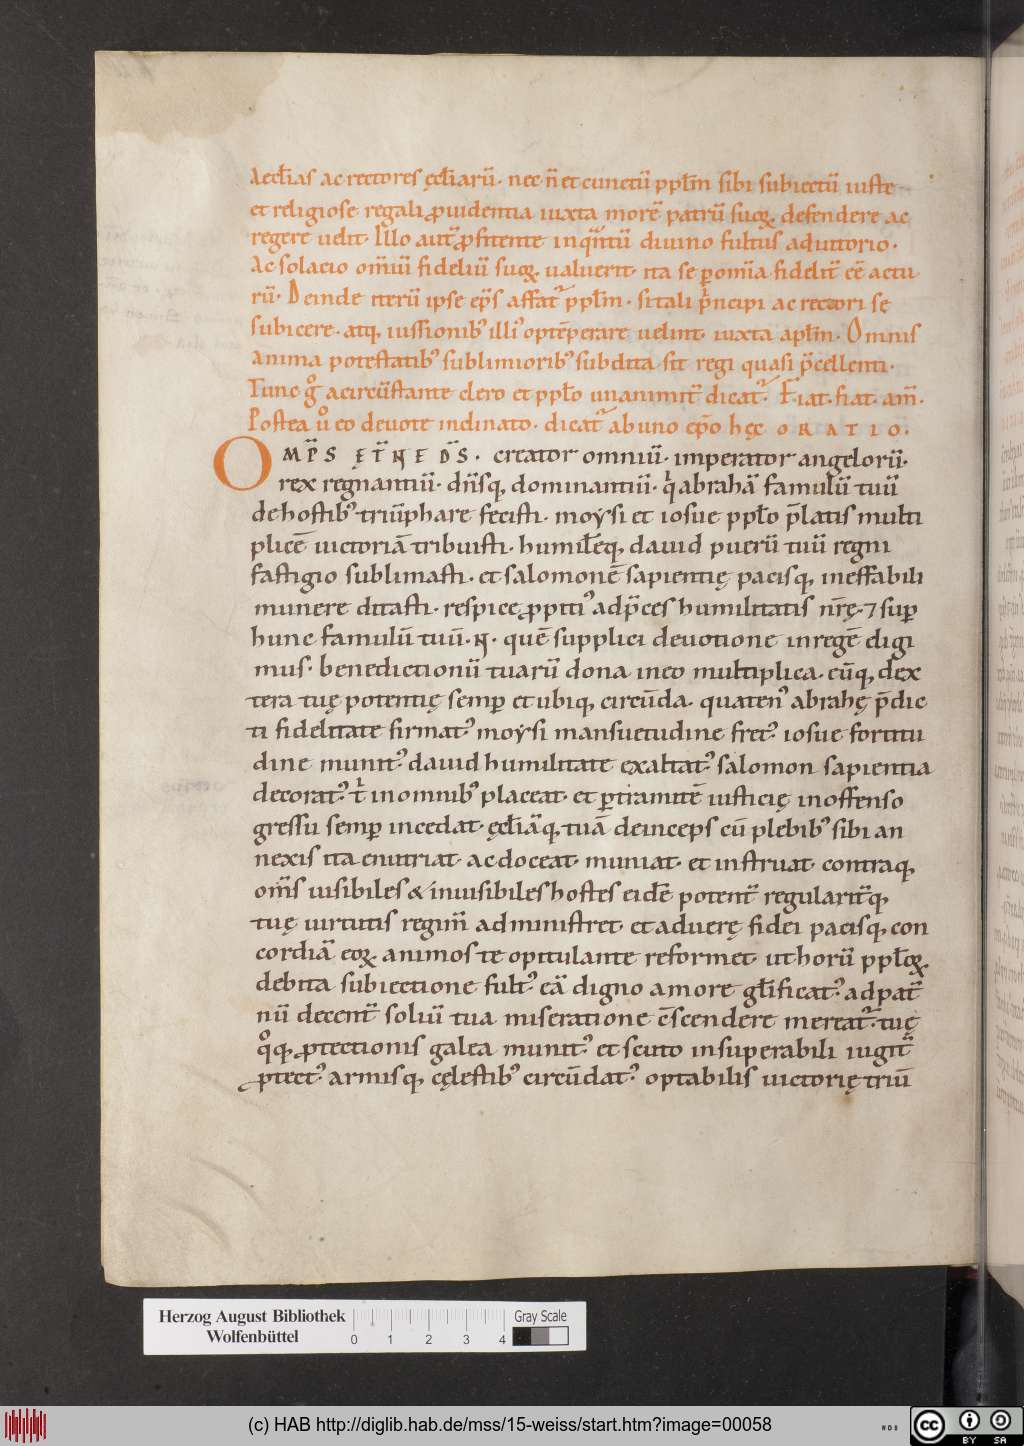 Aeccłias ac rectores ęccłiarū· nec n̄ et cunctū pplm̄ sibi subiectū iuste
et religiose regali ꝓuidentia iuxta morē patrū suoꝝ defendere ac
regere uelit· Illo aut̄ ꝓfitente inqn̄tū diuino fultus adiutorio·
Ac solacio om̄iū fideliū suoꝝ ualuerit· ita se ꝑ om̄ia fidelit̄ eē actu
rū· Deinde iterū ipse ep̄s affat᷒ pplm̄· si tali p̄ncipi ac rectori se
subicere· atq; iussionib᷒ illi᷒ optēperare uelint· iuxta apl̄m· Omnis
anima potestatib᷒ sublimiorib᷒ subdita sit regi quasi p̄cellenti·
Tunc gͦ a circūstante clero et pplo unanimit̄ dicat᷒· Fiat· fiat· am̄·
Postea uͦ eo deuote inclinato· dicat᷒ ab uno ep̄o hęc ORATIO·
OMP̄S ĘT̄NE D̄S· creator omniū· imperator angelorū·
rex regnantiū· dn̄sq; dominantiū· qͥ abrahā famulū tuū
de hostib᷒ triūphare fecisti· moẏsi et iosue pplo p̄latis multi
plicē uictoriā tribuisti· humilēq; dauid puerū tuū regni
fastigio sublimasti· et salomonē sapientię pacisq; ineffabili
munere ditasti· respice ꝓpiti᷒ ad p̄ces humilitatis nr̄ę· ⁊ suꝑ
hunc famulū tuū· N· quē supplici deuotione in regē eligi
mus· benedictionū tuarū dona in eo multiplica· eūq; dex
tera tuę potentię semꝑ et ubiq; circūda· quaten᷒ abrahę p̄dic
ti fidelitate firmat᷒ moẏsi mansuetudine fret᷒ iosue fortitu
dine munit᷒ dauid humilitate exaltat᷒ salomon sapientia
decorat᷒ tͥ in omnib᷒ placeat· et ꝑ tramitē iusticię inoffenso
gressu semꝑ incedat· ęccłiāq; tuā deinceps cū plebib᷒ sibi an
nexis ita enutriat· ac doceat· muniat· et instruat· contraq;
om̄s uisibiles & inuisibiles hostes eidē potent̄ regularit̄q;
tuę uirtutis regim̄ administret· et ad uerę fidei pacisq; con
cordiā eoꝝ animos te opitulante reformet· ut horū pploꝝ
debita subiectione fult᷒ cā digno amore glificat᷒ ad pat̄
nū decent̄ soliū tua miseratione c̄scendere mereat᷒· tuę
qͦq; ꝓtectionis galea munit᷒ et scuto insuperabili iugit̄
ꝓtect᷒ armisq; cęlestib᷒ circūdat᷒ optabilis uictorię triū
Herzog August Bibliothek
Wolfenbüttel
0 1 2 3 4
Gray Scale
(c) HAB http://diglib.hab.de/mss/15-weiss/start.htm?image=00058
WDB
CC BY SA